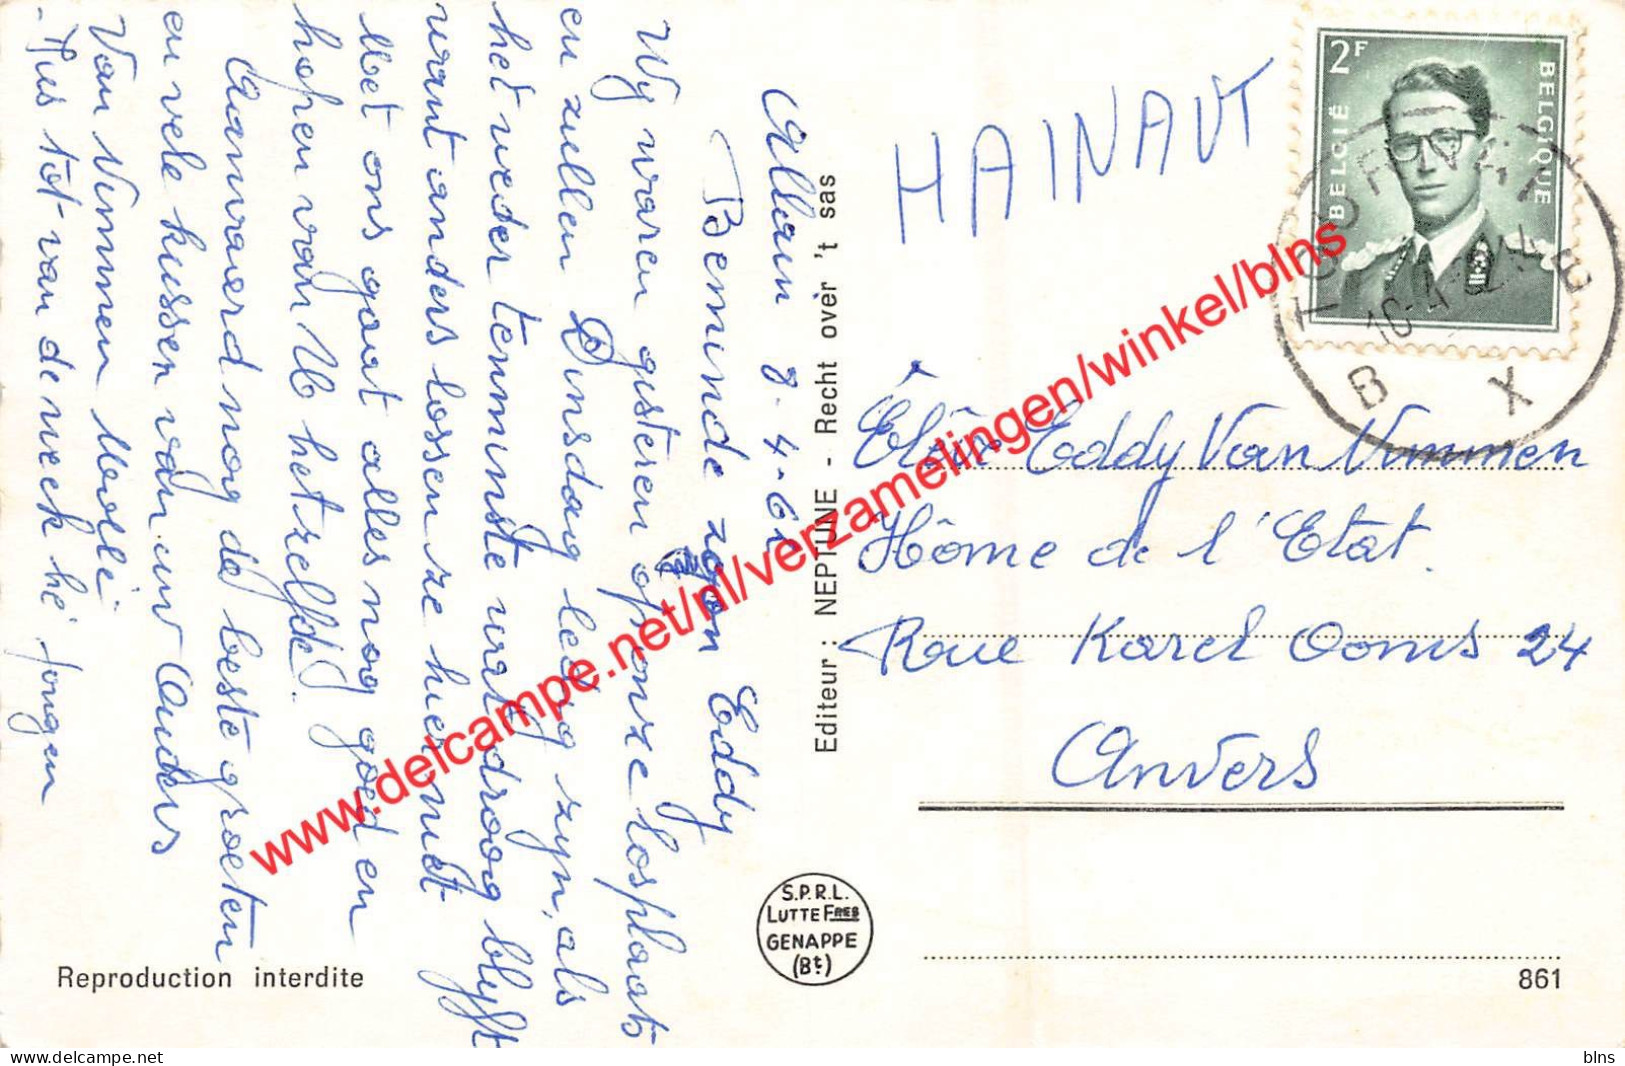 Allain 8-4-62
Beminde zoon Eddy
Wy waren gisteren op onze losplaats
en zullen Dinsdag ledig zyn, als
het weder tenminste wat droog blyft
want anders lossen ze hier niet
Met ons gaat alles nog goed en
hopen van U hetzelfde.
Aanvaerd nog de beste groeten
en vele kussen van uw Ouders
Van Nimmen
. tot van de week hé jongen
HAINAUT
2F
BELGIË
BELGIQUE
B X
Eddy Van Nimmen
Hôme de l'Etat.
Rue Karel Ooms 24
Anvers
Editeur : NEPTUNE - Recht over 't sas
S.P.R.L.
LUTTE FRES
GENAPPE
(Bt.)
Reproduction interdite
861
www.delcampe.net/nl/verzamelingen/winkel/blns
www.delcampe.net
blns